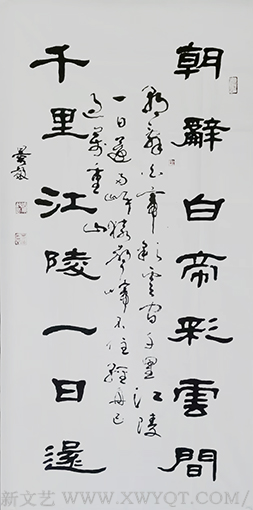 朝辭白帝彩雲間
朝辭白帝彩雲間千里江陵
一日還兩岸猿聲啼不住輕舟已
過萬重山
千里江陵一日還
新文艺 WWW.XWYQT.COM/